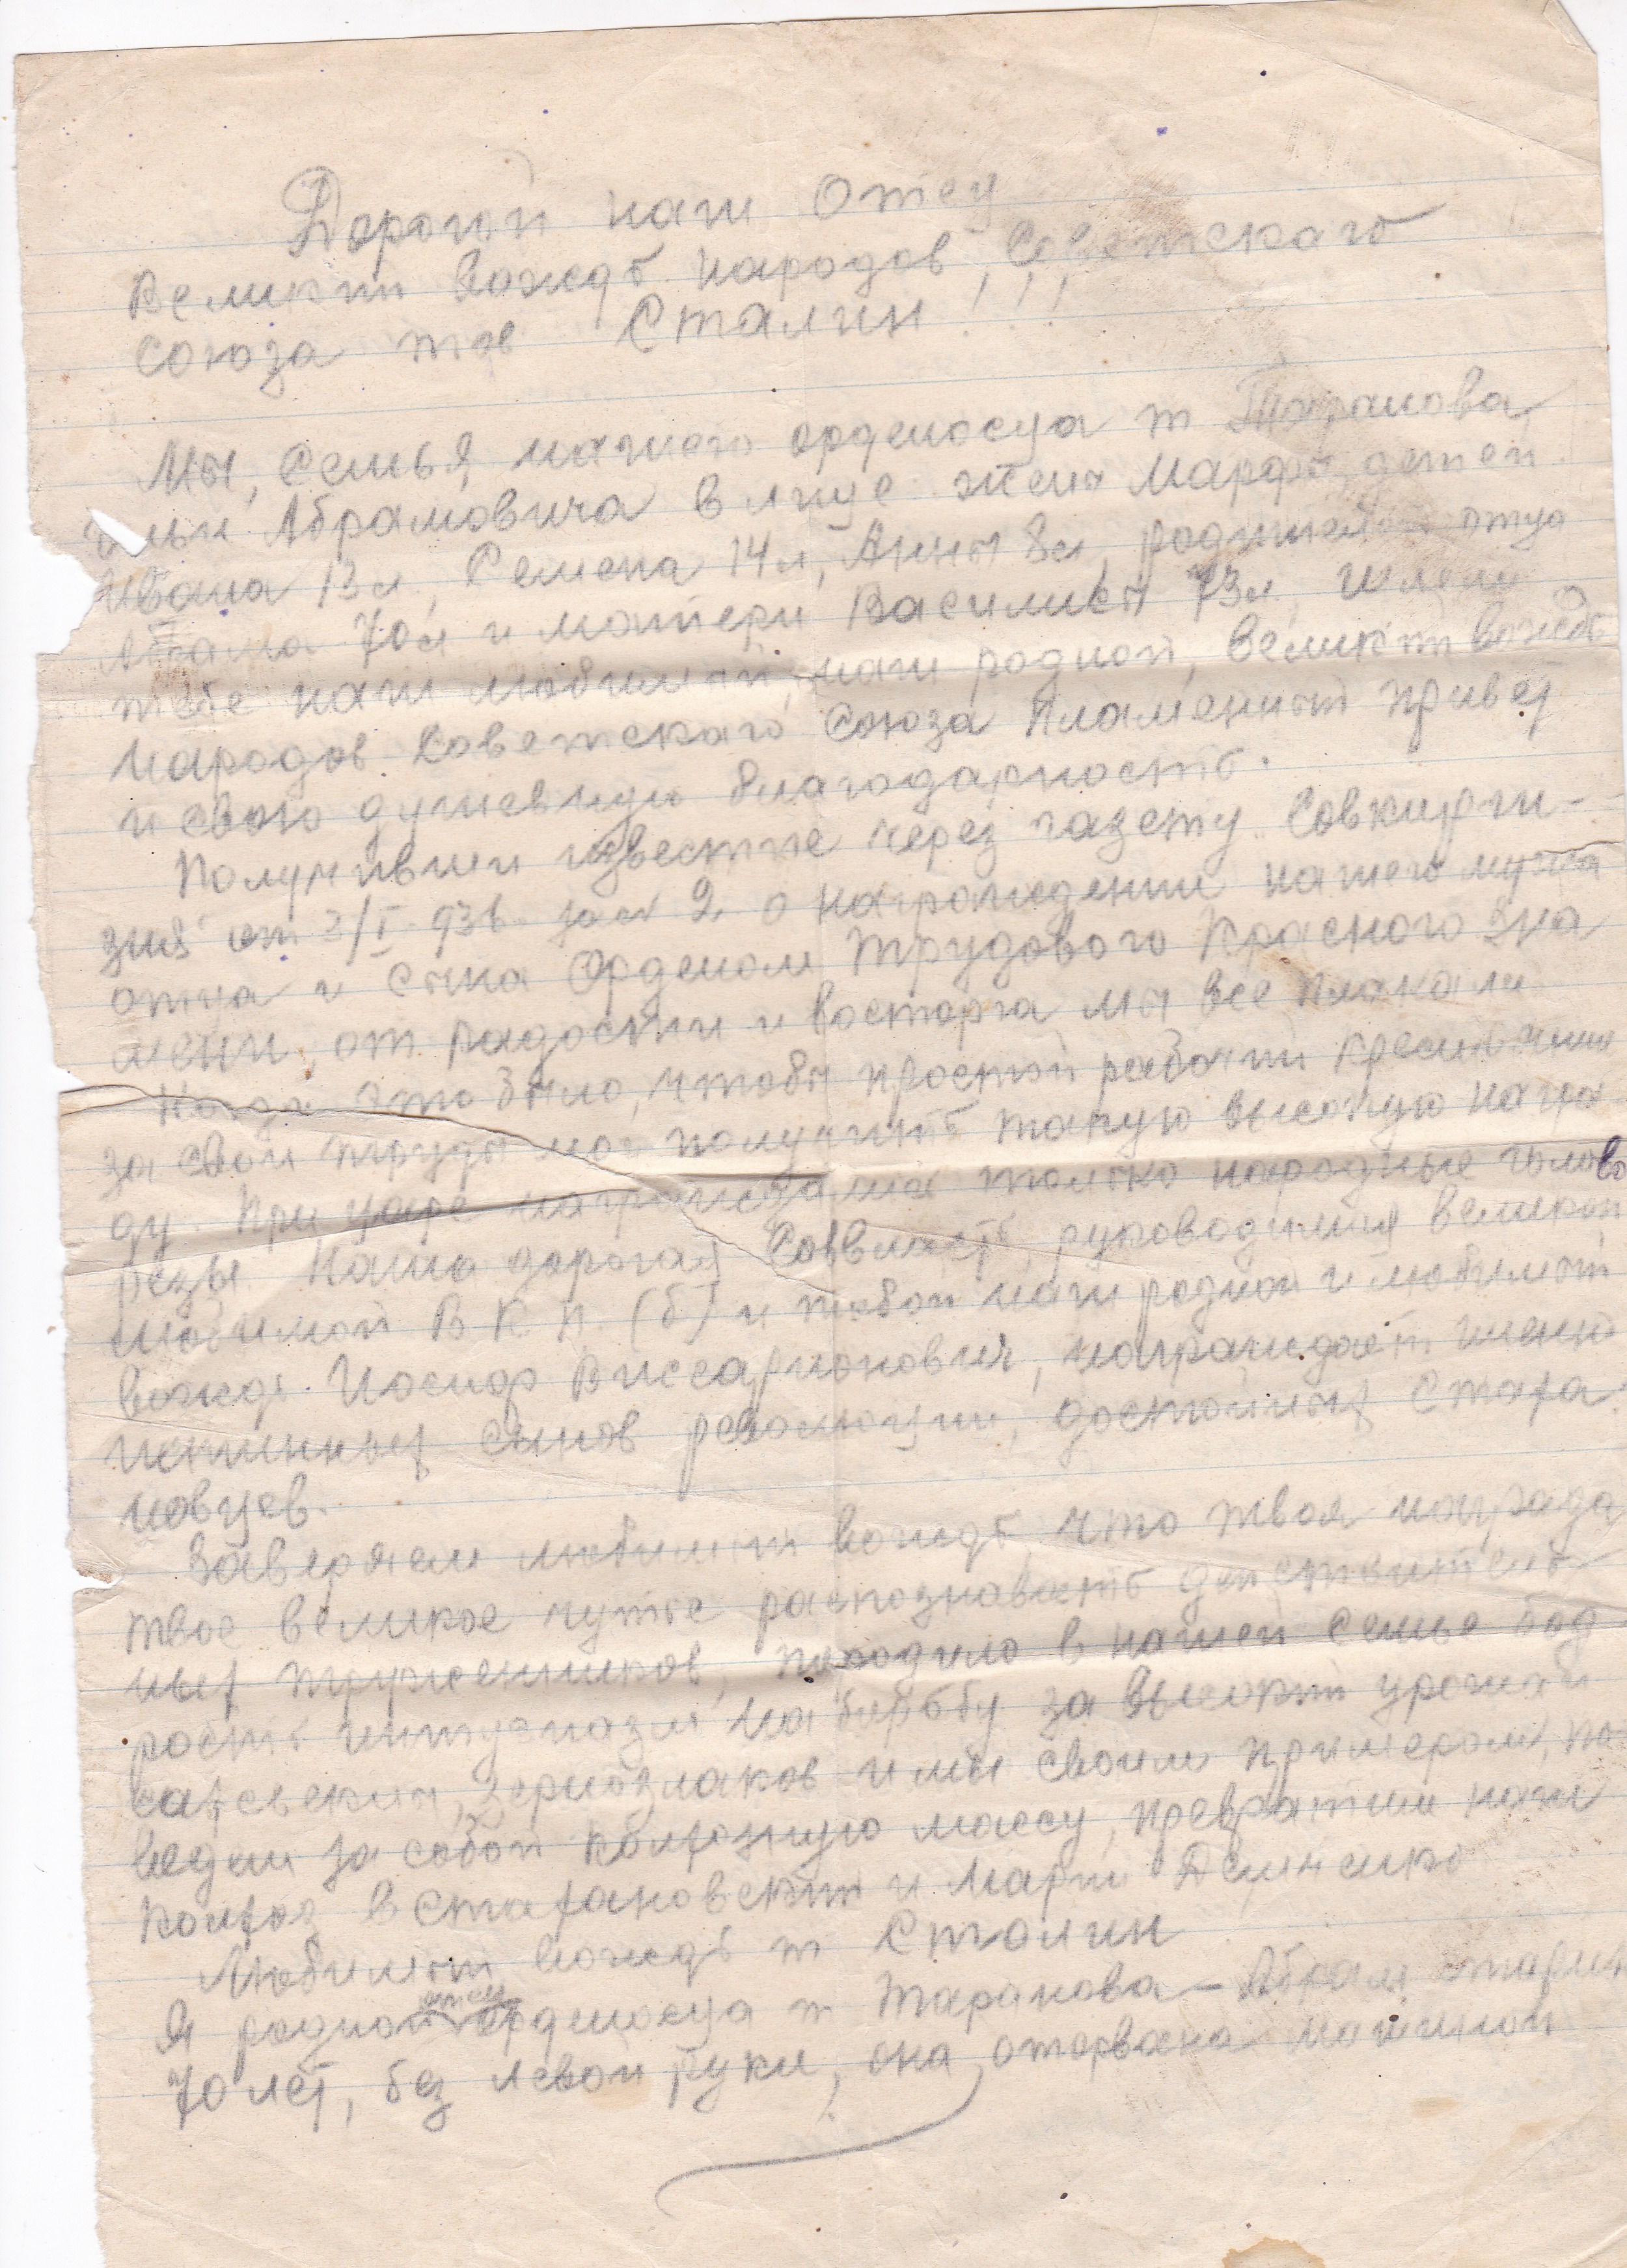 Дорогой наш Отец
Великий Вождь народов Советского
союза тов Сталин!!!
Мы, семья, нашего орденосца т Таранова
Ильи Абрамовича в лице жены Марфы, детей
Ивана 13 л, Семена 14 л, Анны 8 л, родителей отца
Абрама 70 л и матери Василисы 73 л, шлем
тебе наш любимый, наш родной, великий вождь
народов Советского Союза пламенный привет
и свою душевную благодарность.
Получивши известие через газету "Совкирги-
зия" от 3/I 936 за № 2 о награждении нашего мужа
отца и сына Орденом Трудового Красного Зна
мени, от радости и восторга мы все плакали
Когда это было, чтобы простой рабочий крестьянин
за свои труды мог получить такую высокую награ
ду. При царе награждались только народные голово
резы. Наша дорогая Соввласть, руководимая великой
любимой В К П. (б) и тобой наш родной и любимый
вождь Иосиф Виссарионович, награждает именно
истинных сынов революции, достойных Стаха
новцев.
Заверяем любимый вождь, что твоя награда
твое великое чутье распознавать действитель
ных тружеников, породило в нашей семье бод
рость интузиазм на борьбу за высокий урожай
сахсвеклы, зернозлаков и мы своим примером, по
ведем за собой колхозную массу, превратим наш
колхоз в стахановский и Марии Демченко
Любимый вождь т Сталин
Я родной отец орденосца т Таранова — Абрам старик
70 лет, без левой руки, она оторвана машиной